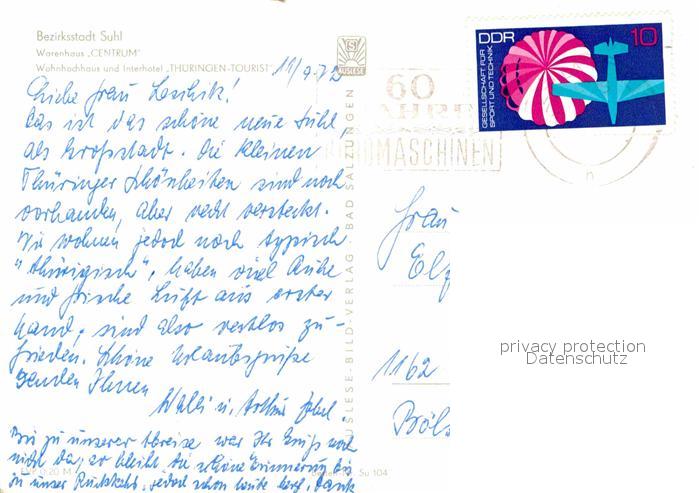 Bezirksstadt Suhl
Warenhaus „CENTRUM"
Wohnhochhaus und Interhotel „THÜRINGEN-TOURIST"
11/9.72
Liebe Frau
Das ist das schöne neue Suhl,
als Großstadt. Die kleinen
Thüringer Schönheiten sind noch
vorhanden, aber recht versteckt.
Wir wohnen jedoch noch typisch
"thürigisch", haben viel Ruhe
und frische Luft aus erster
Hand, sind also restlos zu-
frieden. Schöne Urlaubsgrüße
senden Ihnen
Walli u. Arthur
Bis zu unserer Abreise war Ihr Gruß noch
nicht da, so bleibt die schöne Erinnerung bis
zu unser Rückkehr, jedoch schon heute herzl. Dank
0,20 M
Su 104
AUSLESE-BILD-VERLAG · BAD SALZUNGEN
AUSLESE
60
JAHRE
MASCHINEN
DDR
10
GESELLSCHAFT FÜR
SPORT UND TECHNIK
Frau
1162
privacy protection
Datenschutz